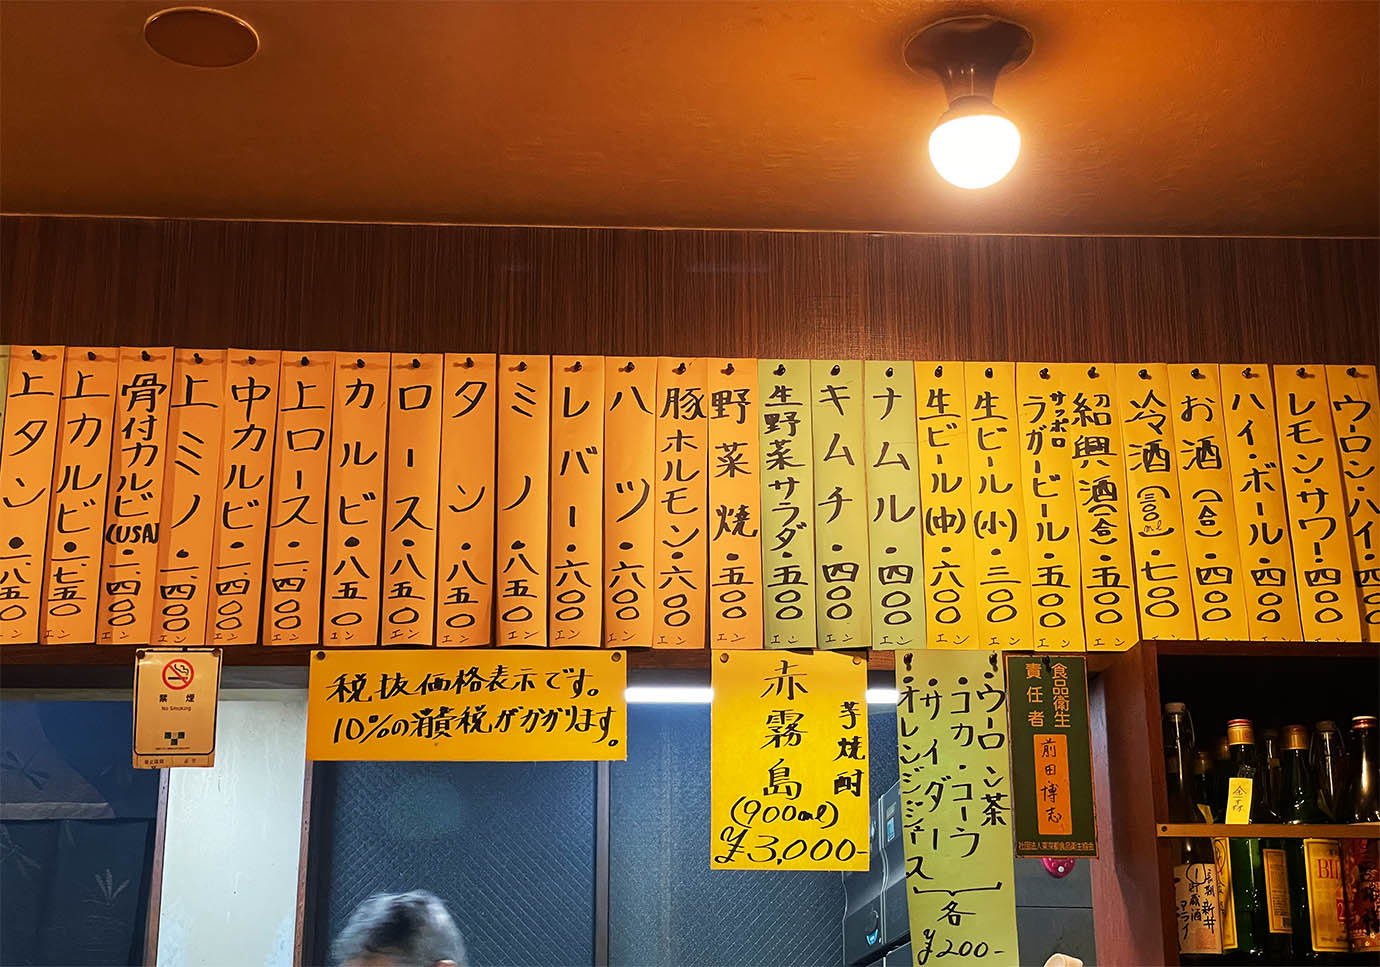 上タン・一、八五〇エン
上カルビ・一、七五〇エン
骨付カルビ(USA)・一、四〇〇エン
上ミノ・一、四〇〇エン
中カルビ・一、四〇〇エン
上ロース・一、四〇〇エン
カルビ・八五〇エン
ロース・八五〇エン
タン・八五〇エン
ミノ・八五〇エン
レバー・六〇〇エン
ハツ・六〇〇エン
豚ホルモン・六〇〇エン
野菜焼・五〇〇エン
生野菜サラダ・五〇〇エン
キムチ・四〇〇エン
ナムル・四〇〇エン
生ビール(中)・六〇〇エン
生ビール(小)・三〇〇エン
サッポロ
ラガービール・五〇〇エン
紹興酒(一合)・五〇〇エン
冷酒(三〇〇ml)・七〇〇エン
お酒(一合)・四〇〇エン
ハイ・ボール・四〇〇エン
レモン・サワー・四〇〇エン
ウーロン・ハイ・四〇
禁煙
No Smoking
税抜価格表示です。
10%の消費税がかかります。
芋焼酎
赤霧島
(900ml)
¥3,000-
ウーロン茶
コカ・コーラ
サイダー
オレンジジュース
各
¥200-
食品衛生
責任者
前田博志
社団法人東京都食品衛生協会